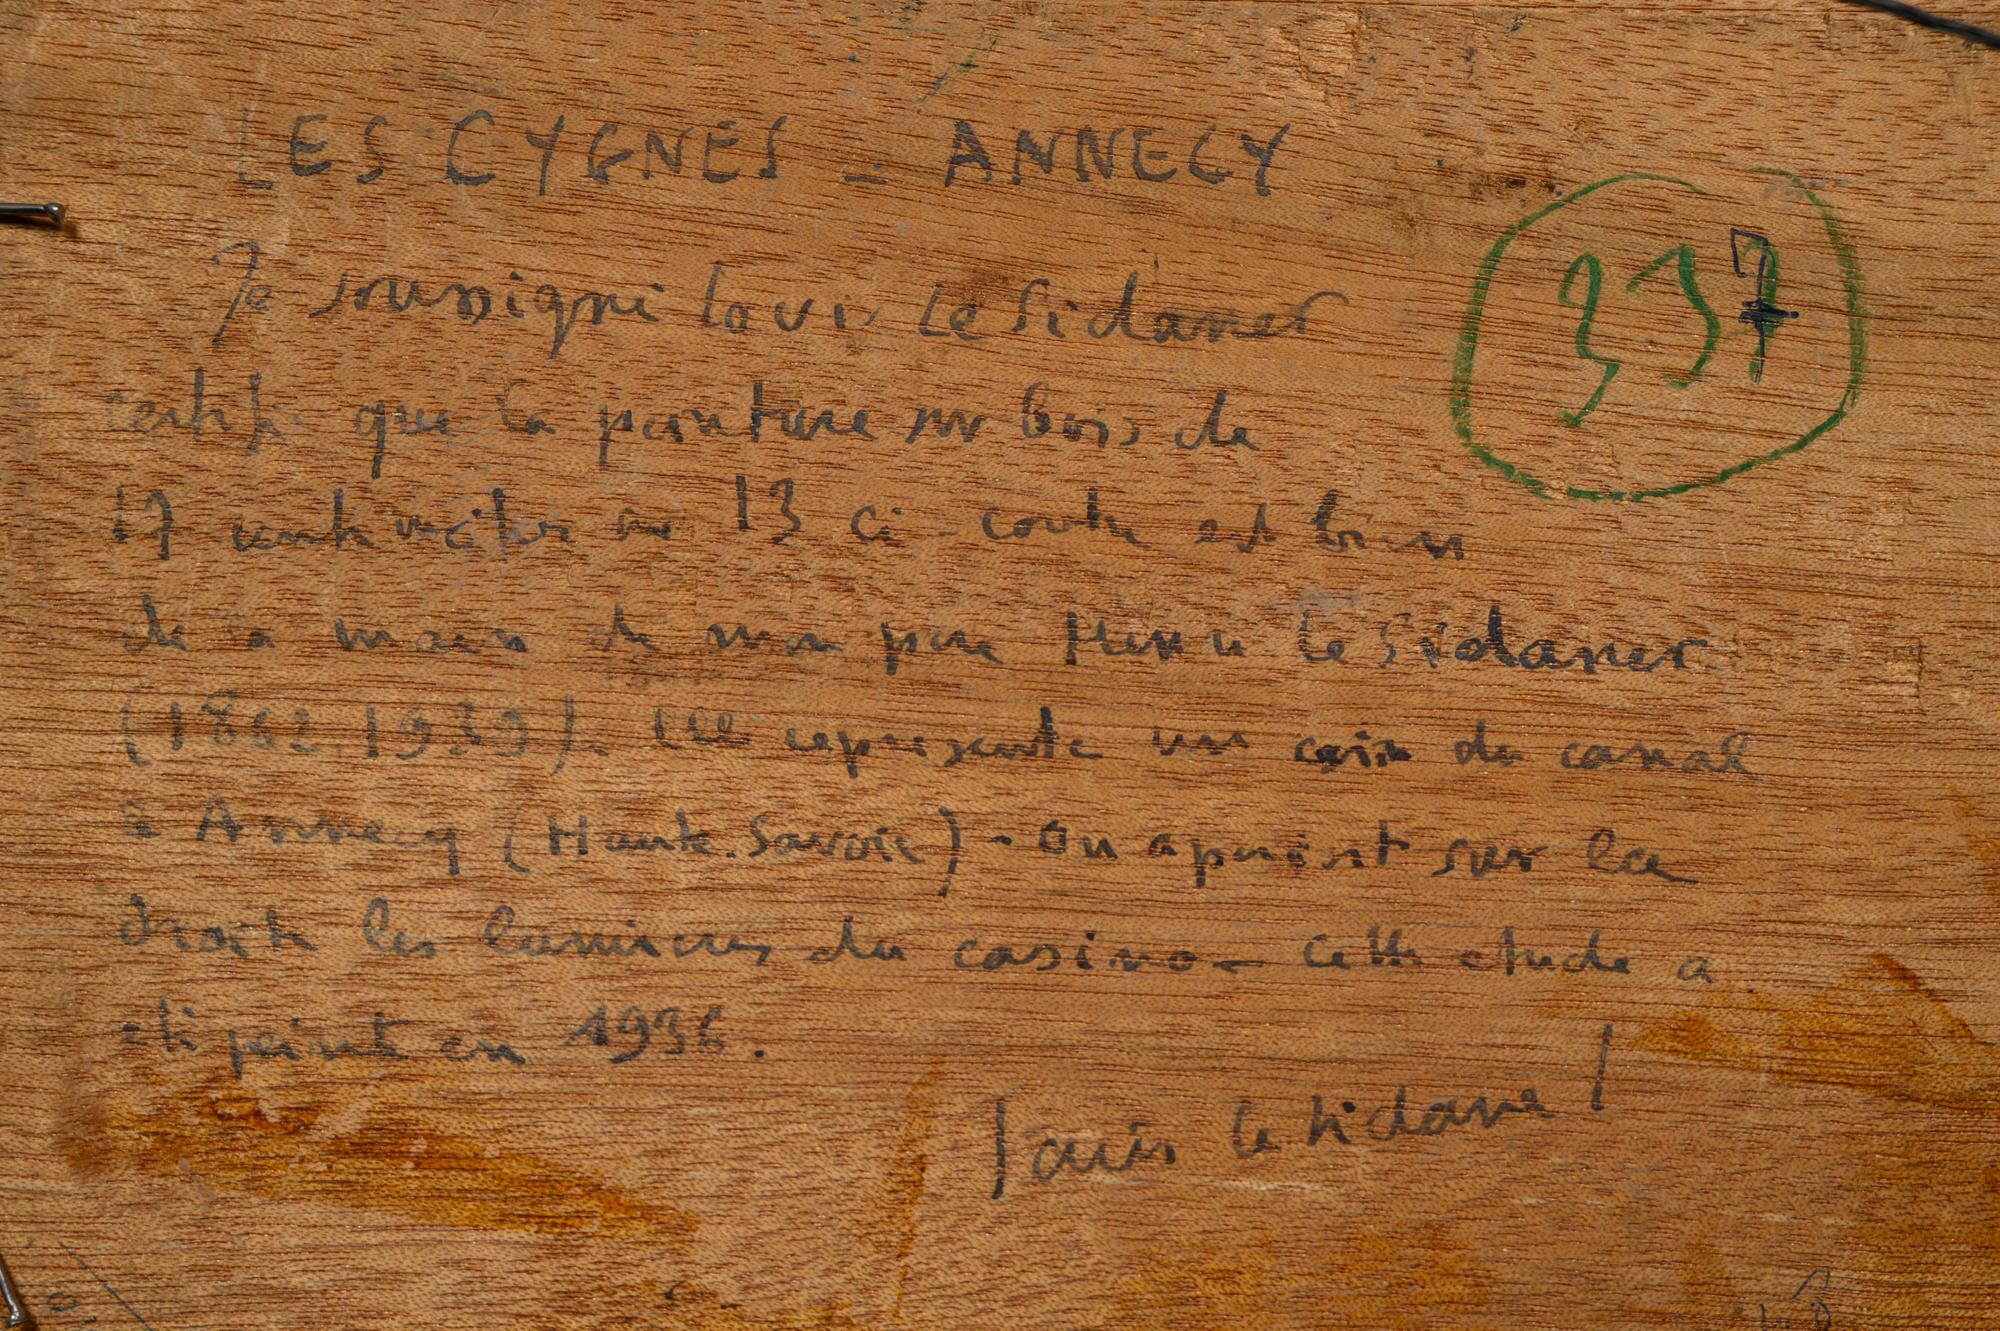 LES CYGNES - ANNECY
337
Je soussigné Louis Le Sidaner
certifie que la peinture sur bois de
17 centimètres sur 13 ci-contre est bien
de la main de mon père Henri Le Sidaner
(1862.1939). Elle représente un coin du canal
à Annecy (Haute.Savoie) - On aperçoit sur la
droite les lumières du casino - Cette étude a
été peinte en 1936.
Louis Le Sidaner